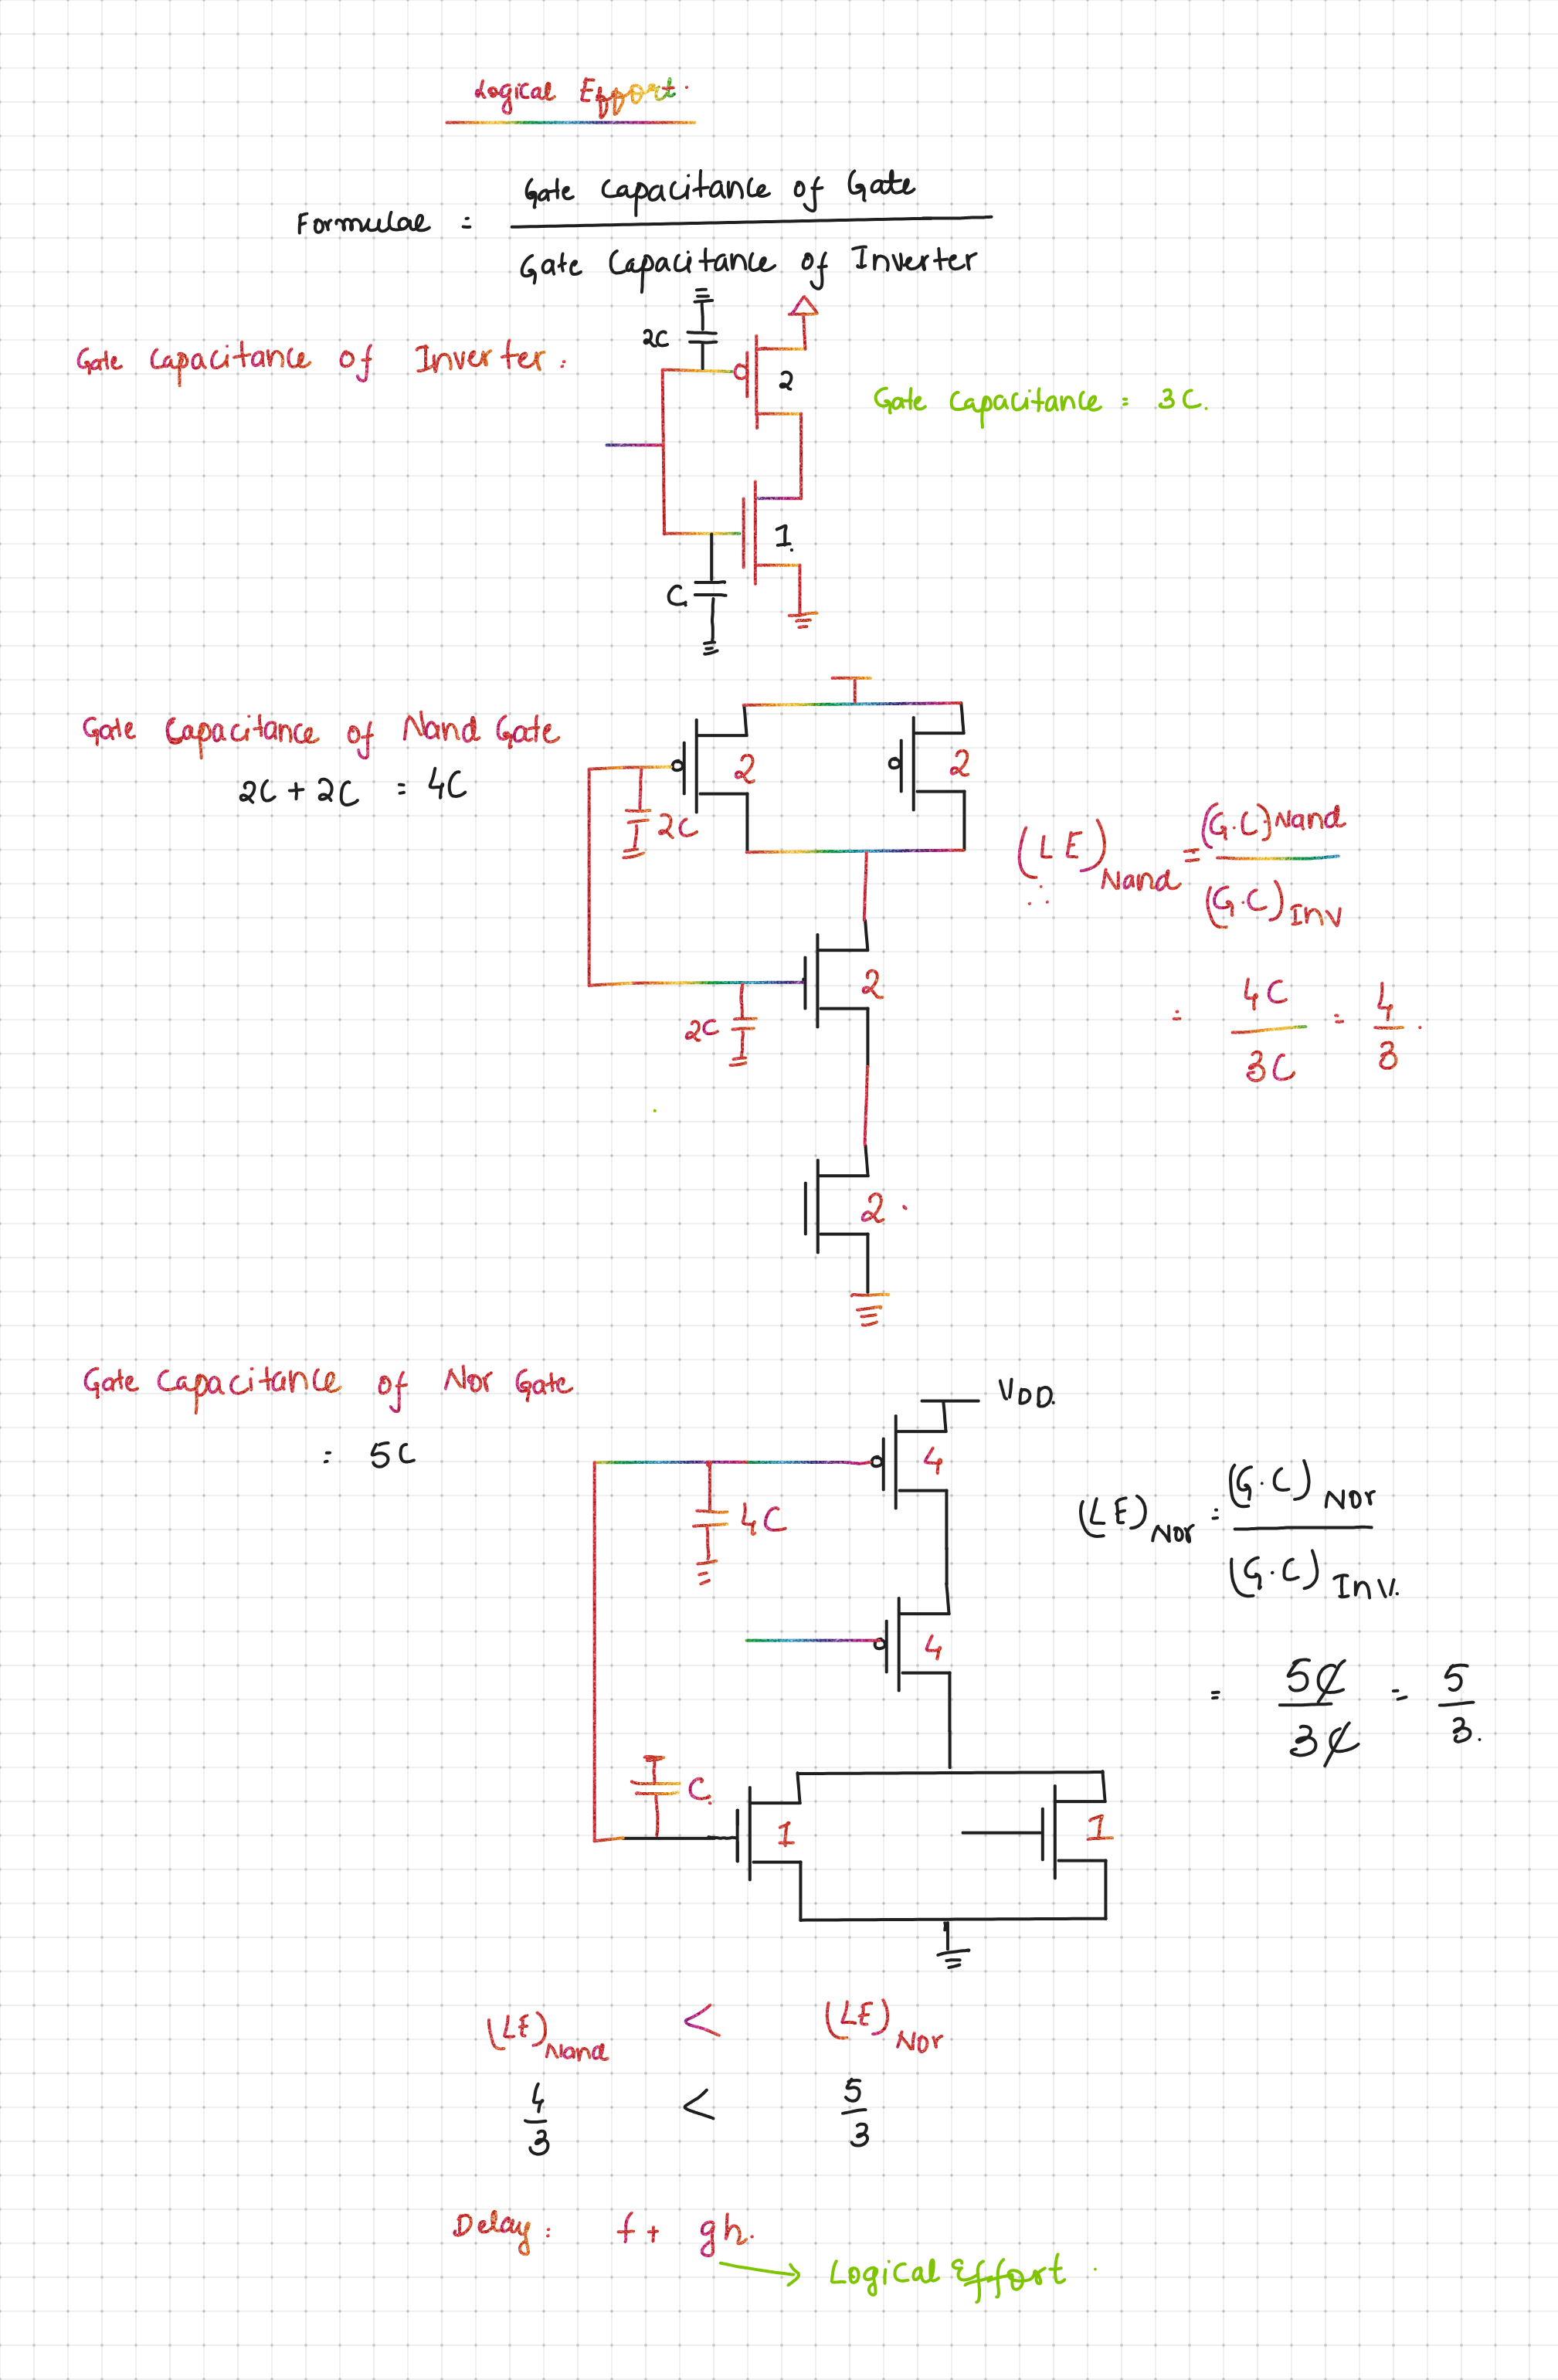 Logical Effort.
Formulae = Gate Capacitance of Gate
Gate Capacitance of Inverter
Gate Capacitance of Inverter :
2C
2
Gate Capacitance = 3C.
1.
C
Gate Capacitance of Nand Gate
2C + 2C = 4C
2
2
2C
(LE)Nand = (G.C)Nand
(G.C)Inv
2
2C
= 4C
3C
= 4
3 .
2 .
Gate Capacitance of Nor Gate
= 5C
VDD.
4
4C
(LE)Nor = (G.C)Nor
(G.C)Inv.
4
= 5C
3C
= 5
3.
C.
1
1
(LE)Nand < (LE)Nor
4
3
<
5
3
Delay : f + gh.
Logical Effort .